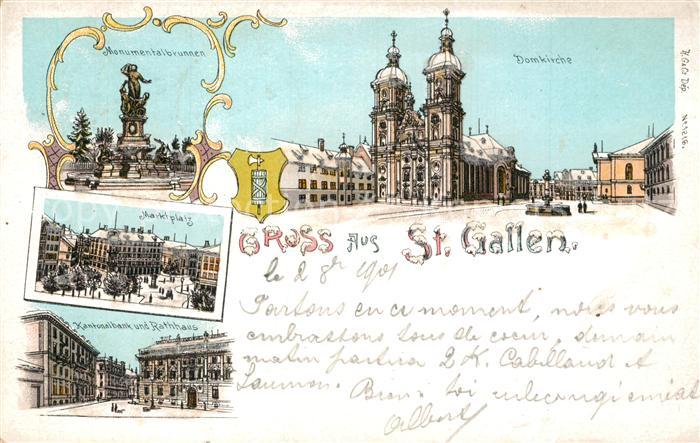 Monumentalbrunnen
Domkirche
Marktplatz
Kantonalbank und Rathhaus
GRUSS AUS St. Gallen.
le 2 8r 1901
Partons en ce moment, nous vous
embrassons tous de coeur, demain
matin partira 2 K. Cabillaud et
Saumon. Bien toi
Albert